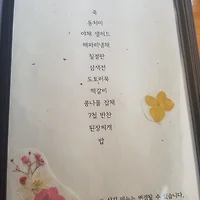 죽
동치미
야채 샐러드
해파리냉채
칠절판
삼색전
도토리묵
떡갈비
콩나물 잡채
7첩 반찬
된장찌개
밥
상기 메뉴는 변경될 수 있습니다.